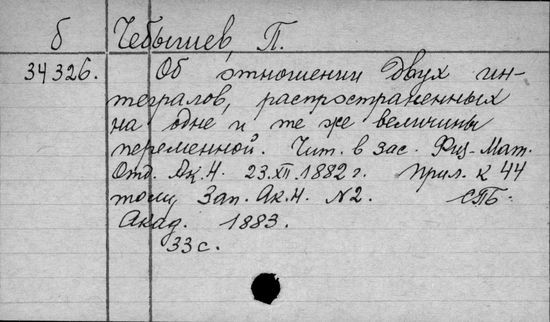 б Чебышев, П.
34326. Об отношении двух ин-
тегралов, распространенных
на одне и те же величины
переменной. Чит. в зас. Физ-Мат.
Отд. Ак. Н. 23.XII.1882 г. Прил. к 44
тому Зап. Ак. Н. №2. СПБ.
Акад. 1883.
33 с.